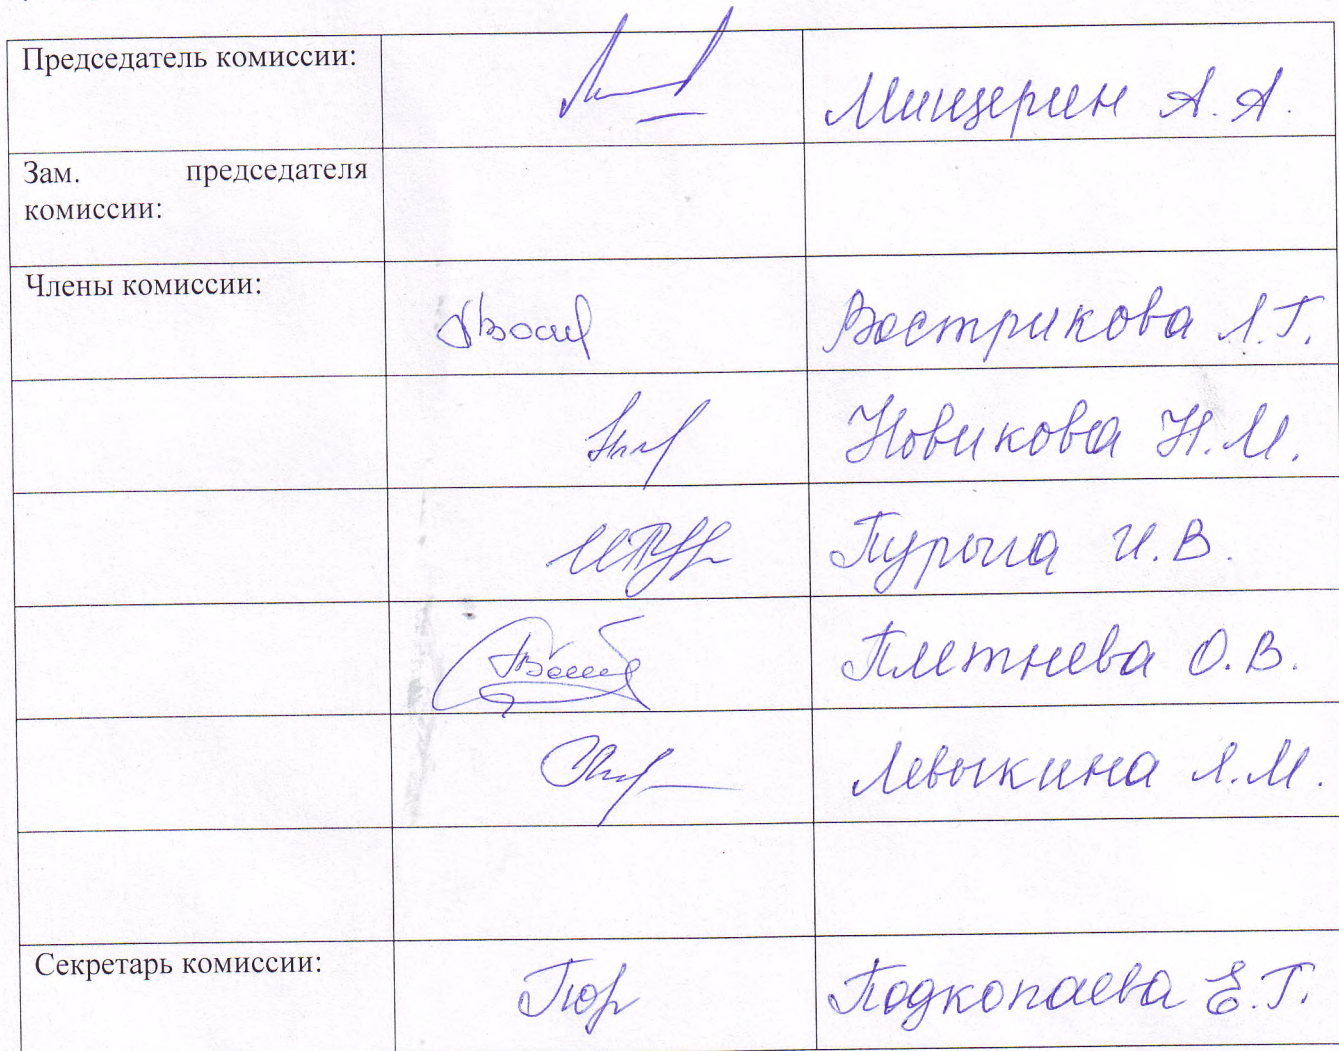 Председатель комиссии:
Мищерин А. А.
Зам. председателя
комиссии:
Члены комиссии:
Вострикова Л.Г.
Новикова Н.М.
Пурыга И.В.
Плетнева О.В.
Левыкина Л.М.
Секретарь комиссии:
Подкопаева Е.Г.